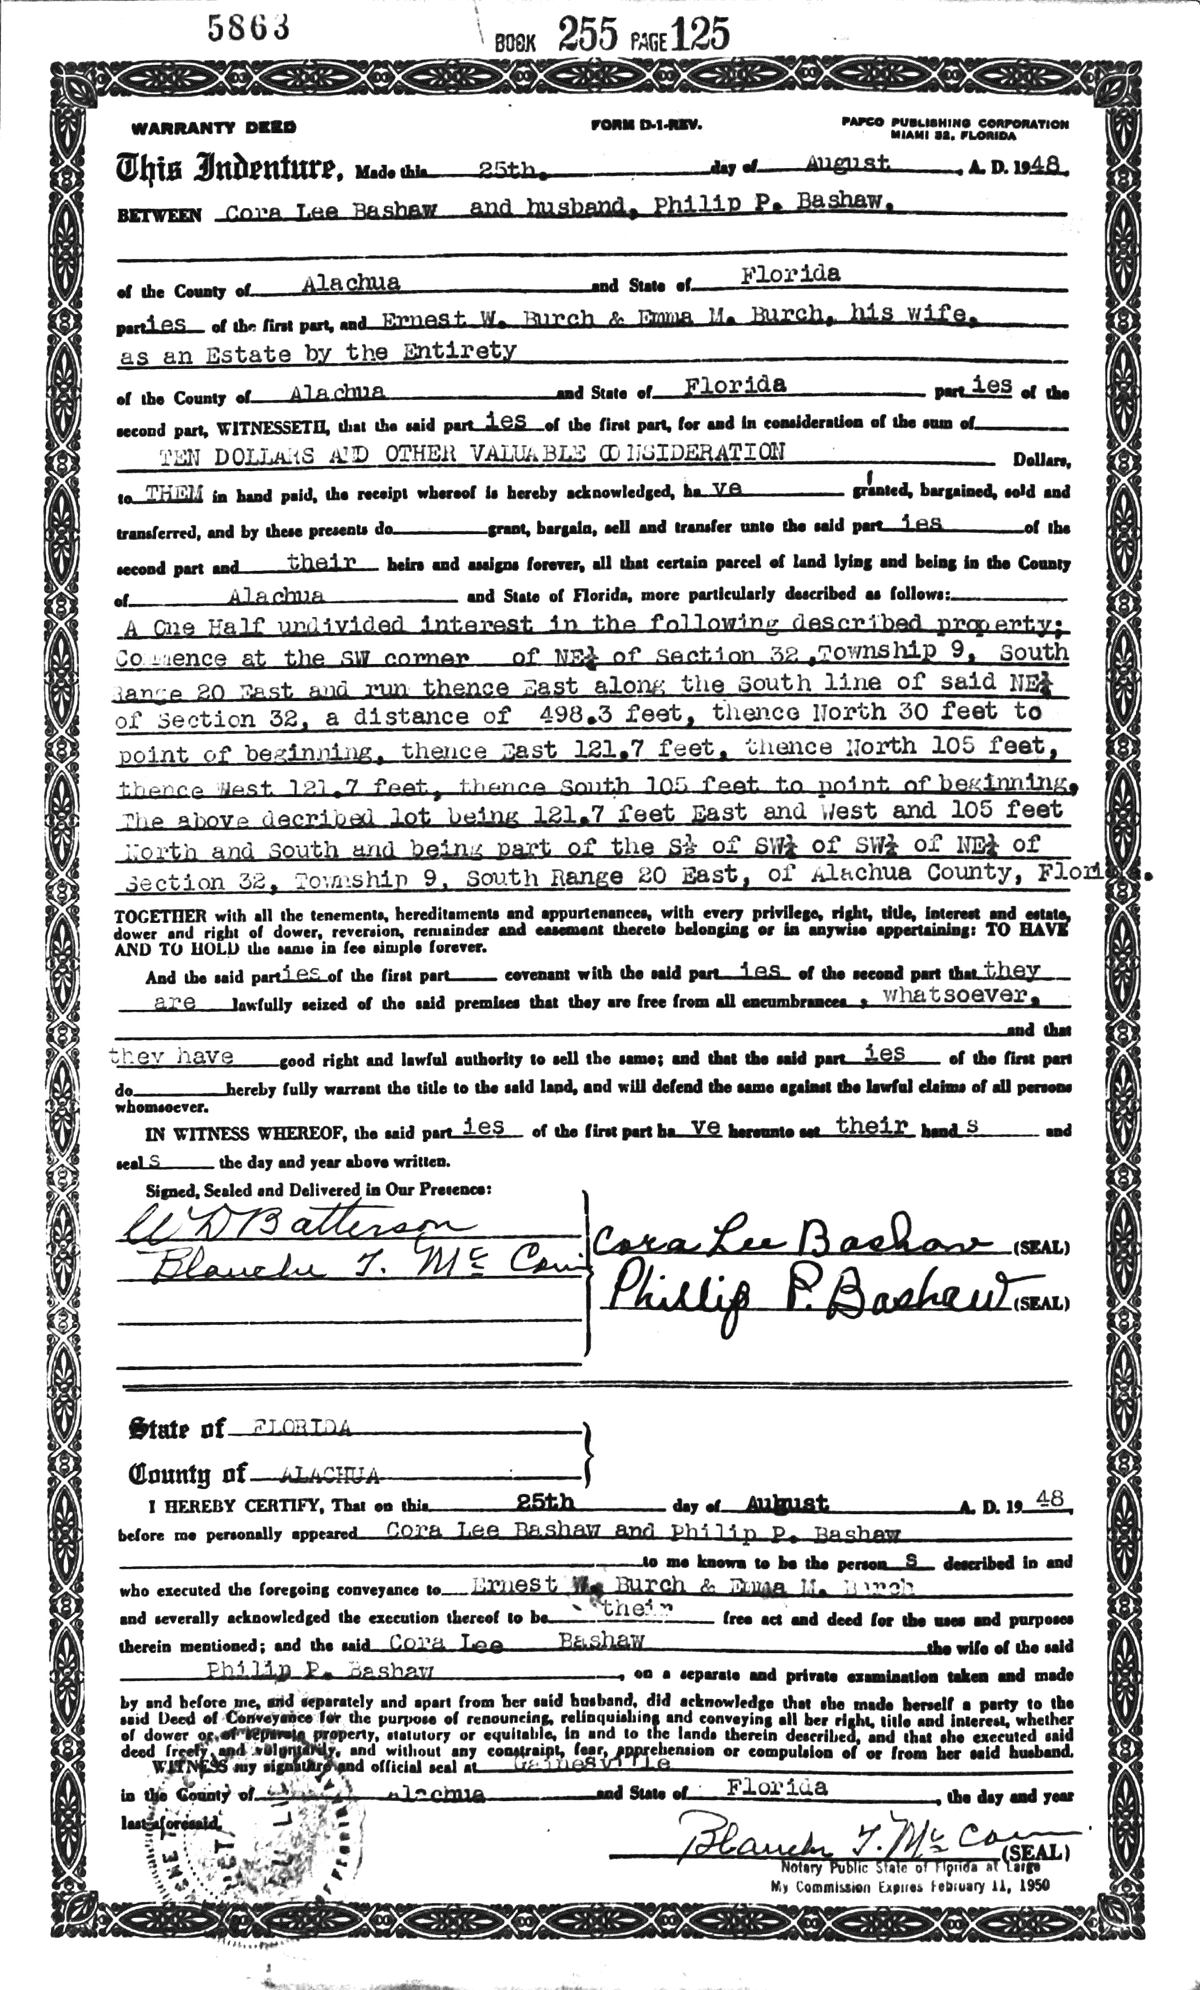 5863
BOOK 255 PAGE 125
WARRANTY DEED FORM D-1-REV. PAPCO PUBLISHING CORPORATION
MIAMI 32, FLORIDA
This Indenture, Made this 25th, day of August , A. D. 1948,
BETWEEN Cora Lee Bashaw and husband, Philip P. Bashaw,
of the County of Alachua and State of Florida
parties of the first part, and Ernest W. Burch & Emma M. Burch, his wife,
as an Estate by the Entirety
of the County of Alachua and State of Florida part ies of the
second part, WITNESSETH, that the said part ies of the first part, for and in consideration of the sum of
TEN DOLLARS AND OTHER VALUABLE CONSIDERATION Dollars,
to THEM in hand paid, the receipt whereof is hereby acknowledged, ha ve granted, bargained, sold and
transferred, and by these presents do grant, bargain, sell and transfer unto the said part ies of the
second part and their heirs and assigns forever, all that certain parcel of land lying and being in the County
of Alachua and State of Florida, more particularly described as follows:
A One Half undivided interest in the following described property;
Commence at the SW corner of NE¼ of Section 32 ,Township 9, South
Range 20 East and run thence East along the South line of said NE¼
of Section 32, a distance of 498.3 feet, thence North 30 feet to
point of beginning, thence East 121.7 feet, thence North 105 feet,
thence West 121.7 feet, thence South 105 feet to point of beginning,
The above decribed lot being 121.7 feet East and West and 105 feet
North and South and being part of the S½ of SW¼ of SW¼ of NE¼ of
Section 32, Township 9, South Range 20 East, of Alachua County, Florida.
TOGETHER with all the tenements, hereditaments and appurtenances, with every privilege, right, title, interest and estate,
dower and right of dower, reversion, remainder and easement thereto belonging or in anywise appertaining: TO HAVE
AND TO HOLD the same in fee simple forever.
And the said parties of the first part covenant with the said part ies of the second part that they
are lawfully seized of the said premises that they are free from all encumbrances , whatsoever,
and that
they have good right and lawful authority to sell the same; and that the said part ies of the first part
do hereby fully warrant the title to the said land, and will defend the same against the lawful claims of all persons
whomsoever.
IN WITNESS WHEREOF, the said part ies of the first part ha ve hereunto set their hand s and
seal s the day and year above written.
Signed, Sealed and Delivered in Our Presence:
W D Batterson
Cora Lee Bashaw (SEAL)
Blanche T. McCown
Phillip P. Bashaw (SEAL)
State of FLORIDA
County of ALACHUA
I HEREBY CERTIFY, That on this 25th day of August A. D. 19 48,
before me personally appeared Cora Lee Bashaw and Philip P. Bashaw
to me known to be the person s described in and
who executed the foregoing conveyance to Ernest W. Burch & Emma M. Burch
and severally acknowledged the execution thereof to be their free act and deed for the uses and purposes
therein mentioned; and the said Cora Lee Bashaw the wife of the said
Philip P. Bashaw , on a separate and private examination taken and made
by and before me, and separately and apart from her said husband, did acknowledge that she made herself a party to the
said Deed of Conveyance for the purpose of renouncing, relinquishing and conveying all her right, title and interest, whether
of dower or of separate property, statutory or equitable, in and to the lands therein described, and that she executed said
deed freely and voluntarily, and without any constraint, fear, apprehension or compulsion of or from her said husband.
WITNESS my signature and official seal at Gainesville
in the County of Alachua and State of Florida , the day and year
last aforesaid.
Blanche T. McCown (SEAL)
Notary Public State of Florida at Large
My Commission Expires February 11, 1950